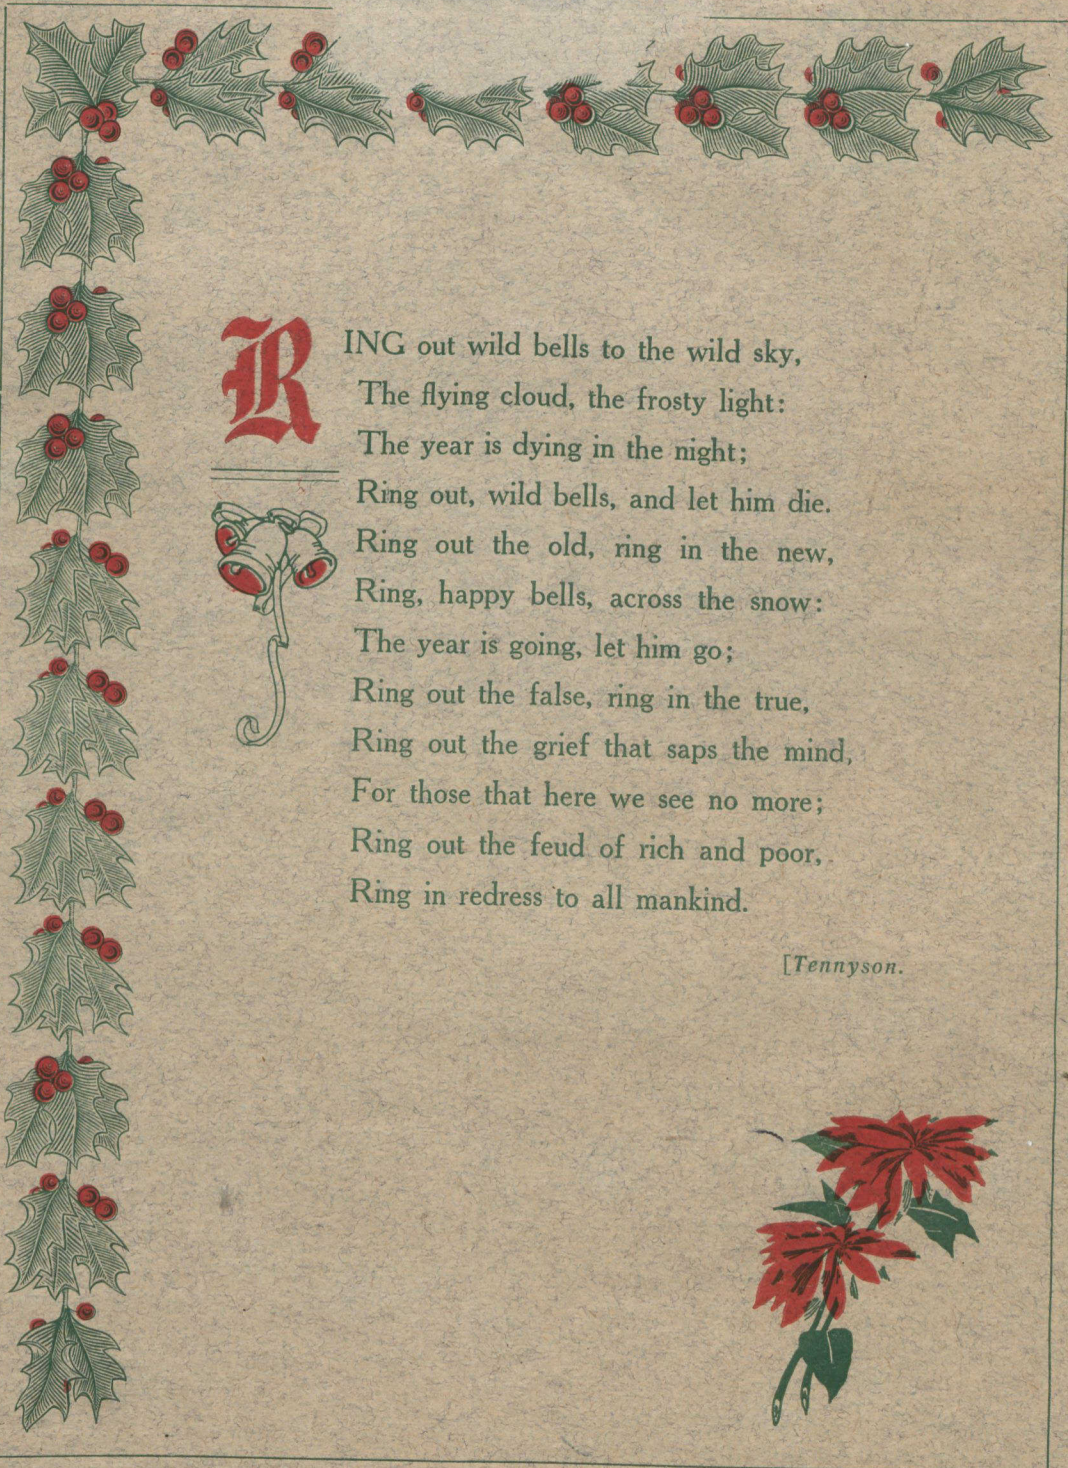 RING out wild bells to the wild sky,
The flying cloud, the frosty light:
The year is dying in the night;
Ring out, wild bells, and let him die.
Ring out the old, ring in the new,
Ring, happy bells, across the snow:
The year is going, let him go;
Ring out the false, ring in the true,
Ring out the grief that saps the mind,
For those that here we see no more;
Ring out the feud of rich and poor,
Ring in redress to all mankind.
[Tennyson.